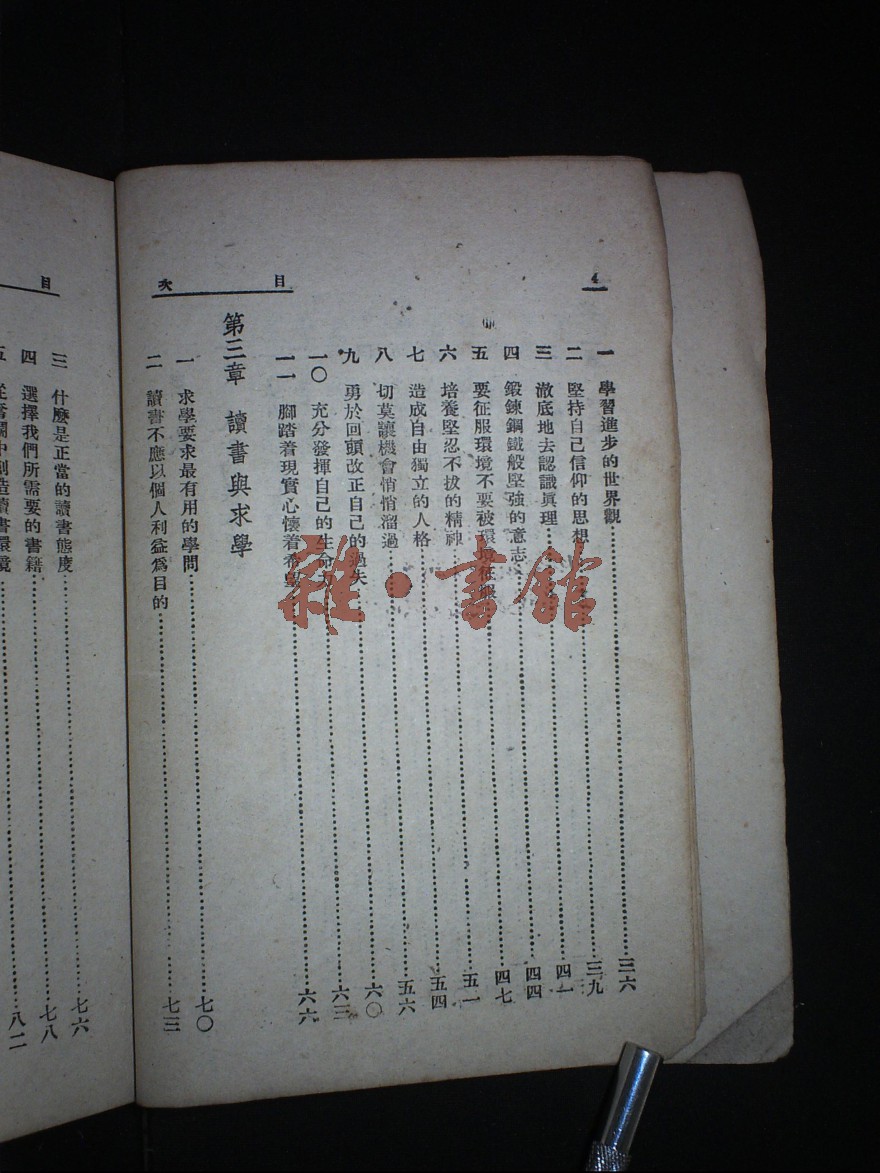 4
目次
一 學習進步的世界觀……三六
二 堅持自己信仰的思想……三九
三 澈底地去認識眞理……四一
四 鍛鍊鋼鐵般堅強的意志……四四
五 要征服環境不要被環境征服……四七
六 培養堅忍不拔的精神……五一
七 造成自由獨立的人格……五四
八 切莫讓機會悄悄溜過……五六
九 勇於回頭改正自己的過失……六〇
一〇 充分發揮自己的生命力……六三
一一 腳踏着現實心懷着希望……六六
第三章 讀書與求學
一 求學要求最有用的學問……七〇
二 讀書不應以個人利益爲目的……七三
目
三 什麼是正當的讀書態度……七六
四 選擇我們所需要的書籍……七八
中創造讀書環境……八二
雜·書館